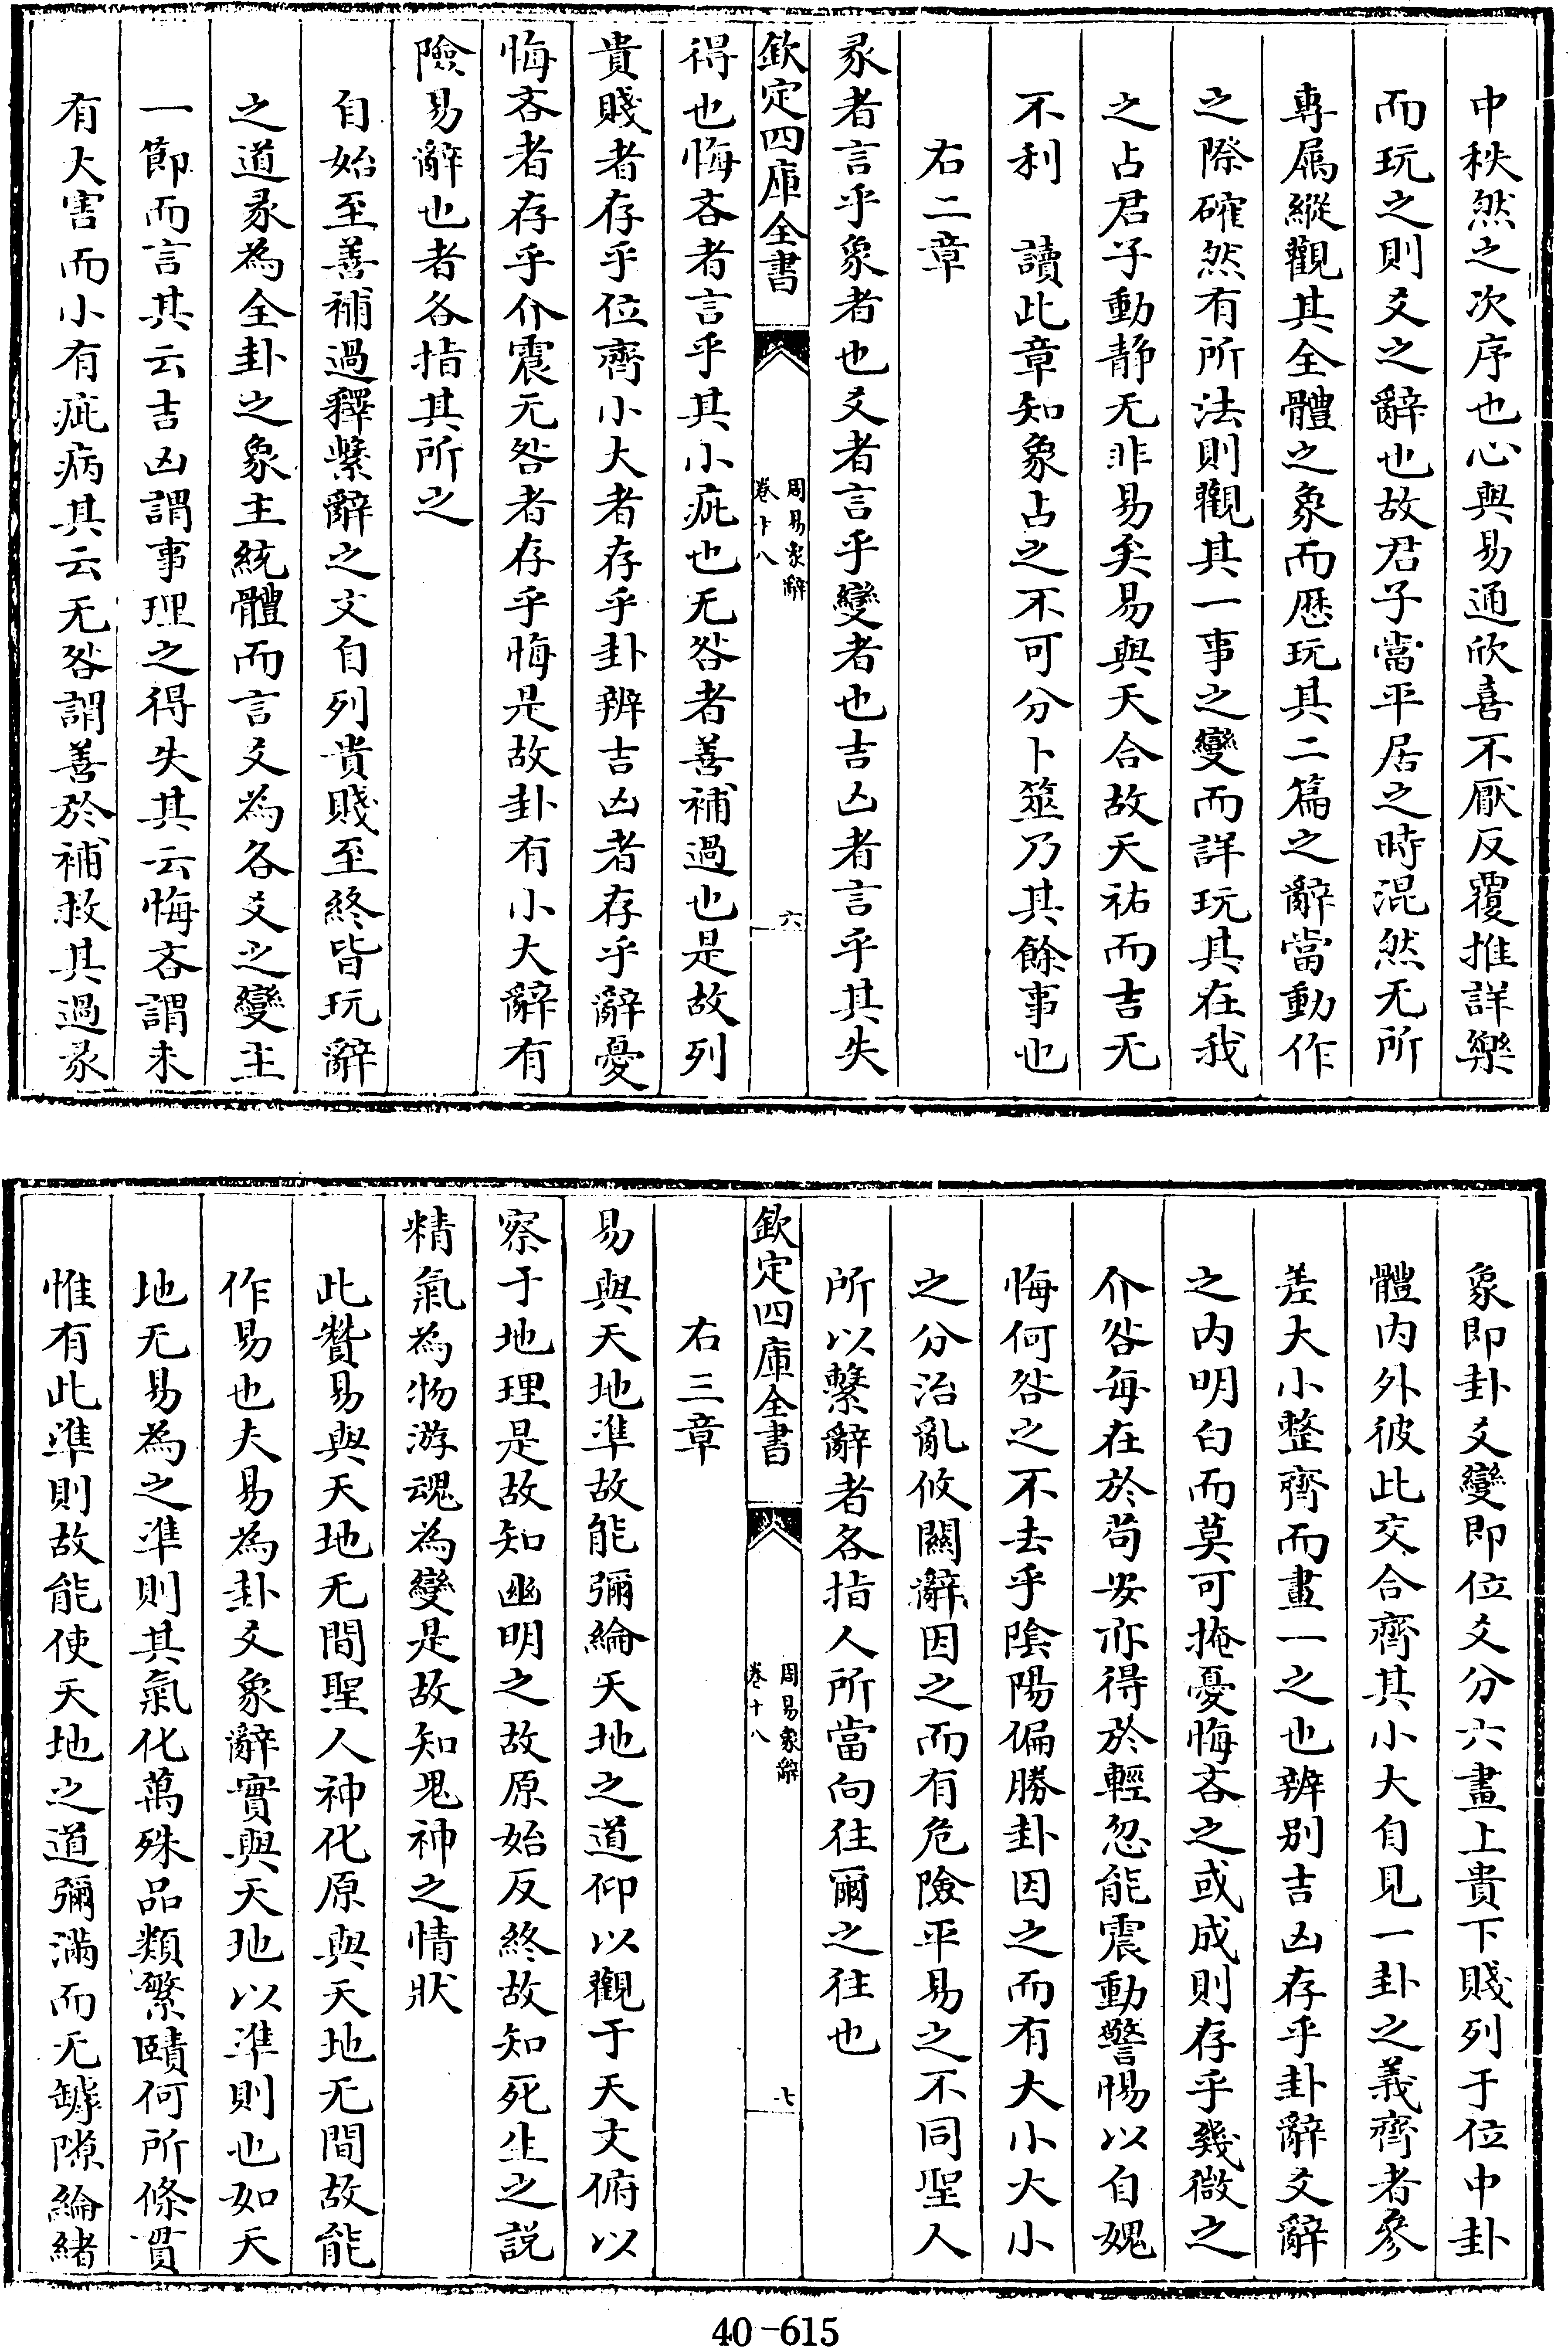 中秩然之次序也心與易通欣喜不厭反覆推詳樂
而玩之則爻之辭也故君子當平居之時混然无所
專屬縱觀其全體之象而歷玩其二篇之辭當動作
之際確然有所法則觀其一事之變而詳玩其在我
之占君子動靜无非易矣易與天合故天祐而吉无
不利　讀此章知象占之不可分卜筮乃其餘事也
右二章
彖者言乎象者也爻者言乎變者也吉凶者言乎其失
欽定四庫全書
周易象辭
卷十八
六
得也悔吝者言乎其小疵也无咎者善補過也是故列
貴賤者存乎位齊小大者存乎卦辨吉凶者存乎辭憂
悔吝者存乎介震无咎者存乎悔是故卦有小大辭有
險易辭也者各指其所之
自始至善補過釋繫辭之文自列貴賤至終皆玩辭
之道彖為全卦之象主統體而言爻為各爻之變主
一節而言其云吉凶謂事理之得失其云悔吝謂未
有大害而小有疵病其云无咎謂善於補救其過彖
象即卦爻變即位爻分六畫上貴下賤列于位中卦
體內外彼此交合齊其小大自見一卦之義齊者參
差大小整齊而畫一之也辨别吉凶存乎卦辭爻辭
之内明白而莫可掩憂悔吝之或成則存乎幾微之
介咎每在於苟安亦得於輕忽能震動警惕以自媿
悔何咎之不去乎陰陽偏勝卦因之而有大小大小
之分治亂攸關辭因之而有危險平易之不同聖人
所以繫辭者各指人所當向往爾之往也
欽定四庫全書
周易象辭
卷十八
七
右三章
易與天地準故能彌綸天地之道仰以觀于天文俯以
察于地理是故知幽明之故原始反終故知死生之説
精氣為物游魂為變是故知鬼神之情狀
此贊易與天地无間聖人神化原與天地无間故能
作易也夫易為卦爻象辭實與天地以準則也如天
地无易為之準則其氣化萬殊品類繁賾何所條貫
惟有此準則故能使天地之道彌滿而无罅隙綸緒
40-615